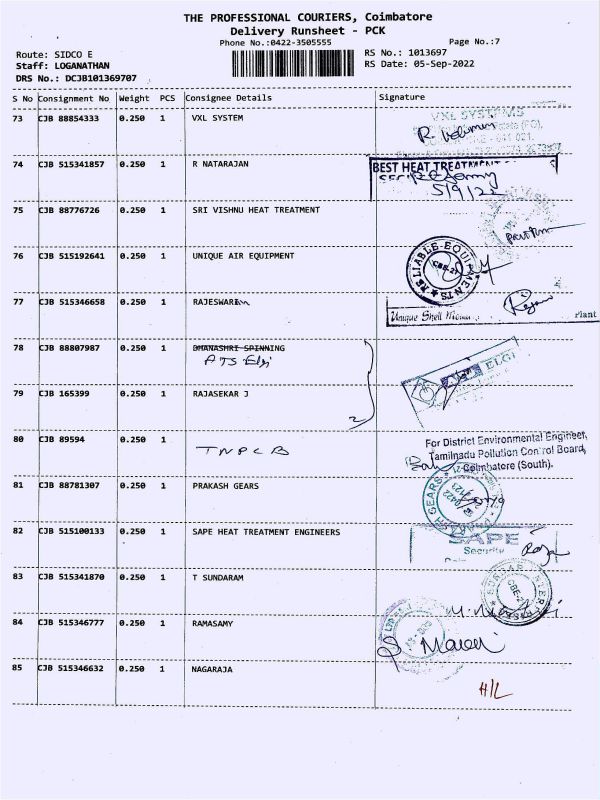 THE PROFESSIONAL COURIERS, Coimbatore
Delivery Runsheet - PCK
Phone No.:0422-3505555
Page No.:7
Route: SIDCO E
RS No.: 1013697
Staff: LOGANATHAN
RS Date: 05-Sep-2022
DRS No.: DCJB101369707
S No Consignment No Weight PCS Consignee Details Signature
73 CJB 88854333 0.250 1 VXL SYSTEM
VXL SYSTEMS
74 CJB 515341857 0.250 1 R NATARAJAN
BEST HEAT TREATMENT
5/9/22
75 CJB 88776726 0.250 1 SRI VISHNU HEAT TREATMENT
76 CJB 515192641 0.250 1 UNIQUE AIR EQUIPMENT
RELIABLE EQUIPMENTS
CBE-21
77 CJB 515346658 0.250 1 RAJESWARI
Unique Shell
Plant
78 CJB 88807987 0.250 1 DHANASHRI SPINNING
ATS Elgi
ATS ELGI
79 CJB 165399 0.250 1 RAJASEKAR J
2
80 CJB 89594 0.250 1 TNPCB
For District Environmental Engineer,
Tamilnadu Pollution Control Board,
Coimbatore (South).
81 CJB 88781307 0.250 1 PRAKASH GEARS
GEARS
82 CJB 515100133 0.250 1 SAPE HEAT TREATMENT ENGINEERS
SAPE
Security
83 CJB 515341870 0.250 1 T SUNDARAM
CBE-21
84 CJB 515346777 0.250 1 RAMASAMY
85 CJB 515346632 0.250 1 NAGARAJA
H/L